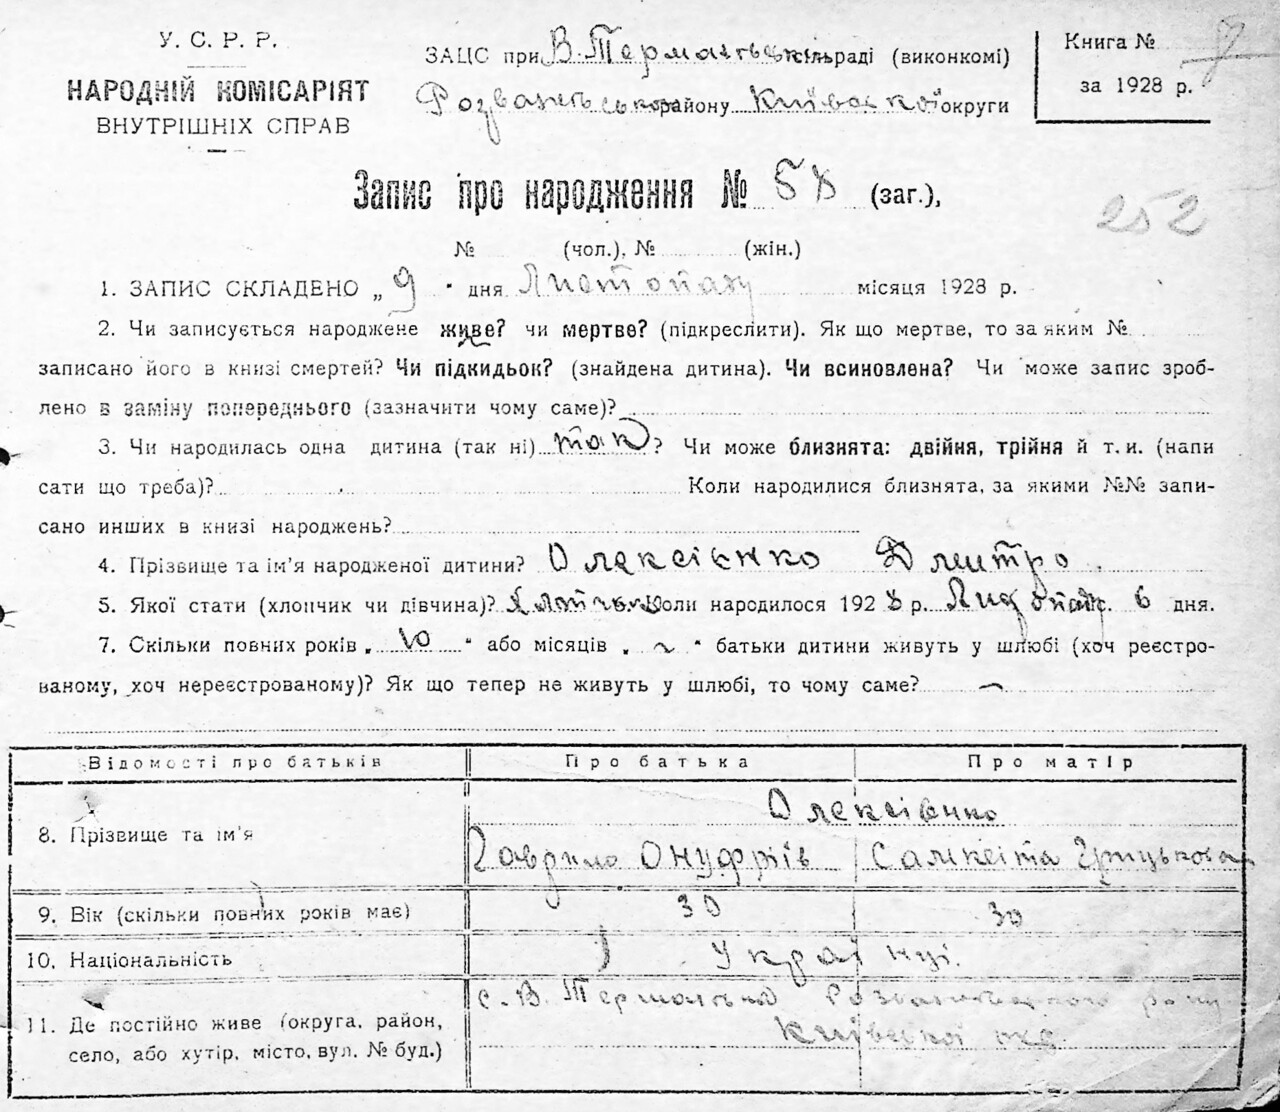 У. С. Р. Р.
НАРОДНІЙ КОМІСАРІЯТ
ВНУТРІШНІХ СПРАВ
ЗАЦС при В. Термахівськ. сільраді (виконкомі)
Розважівського району Київської округи
Книга №
за 1928 р.
Запис про народження № 58 (заг.),
252
№ (чол.), № (жін.)
1. ЗАПИС СКЛАДЕНО „ 9 " дня Листопаду місяця 1928 р.
2. Чи записується народжене живе? чи мертве? (підкреслити). Як що мертве, то за яким №
записано його в книзі смертей? Чи підкидьок? (знайдена дитина). Чи всиновлена? Чи може запис зроб-
лено в заміну попереднього (зазначити чому саме)?
3. Чи народилась одна дитина (так ні) так ? Чи може близнята: двійня, трійня й т. и. (напи
сати що треба)? Коли народилися близнята, за якими №№ запи-
сано инших в книзі народжень?
4. Прізвище та ім'я народженої дитини? Олексієнко Дмитро
5. Якої стати (хлопчик чи дівчина)? Коли народилося 1928 р. 6 дня.
7. Скільки повних років „ 10 " або місяців „ ~ " батьки дитини живуть у шлюбі (хоч реєстро-
ваному, хоч нереєстрованому)? Як що тепер не живуть у шлюбі, то чому саме? —
Відомості про батьків Про батька Про матір
Олексієнко
8. Прізвище та ім'я Гаврило Онуфріїв Грицькова
9. Вік (скільки повних років має) 30 30
10. Національність Українці.
с. В. Розважівського рону
11. Де постійно живе (округа, район, Київської окр.
село, або хутір, місто, вул. № буд.)